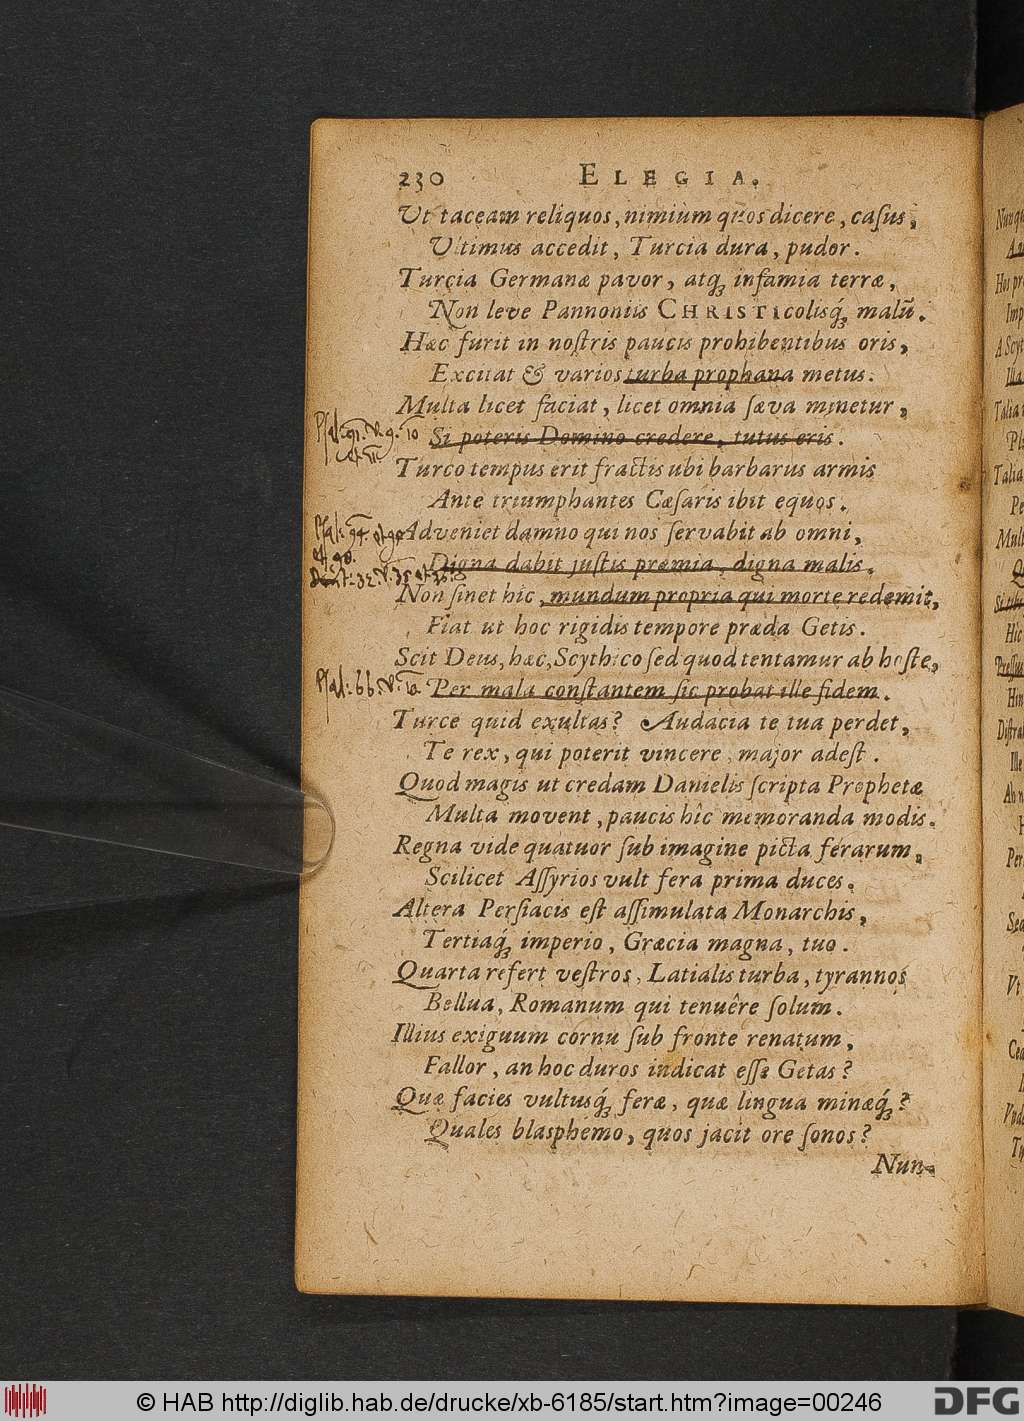 230 ELEGIA.
Ut taceam reliquos, nimium quos dicere, caſus,
Ultimus accedit, Turcia dura, pudor.
Turcia Germanæ pavor, atq́ꝫ infamia terræ,
Non leve Pannoniis CHRISTIcolisq́ꝫ malū.
Hæc furit in noſtris paucis prohibentibus oris,
Excitat & varios turba prophana metus.
Multa licet faciat, licet omnia ſæva minetur,
Pſal. 91. V. 9. 10
et 11
Si poteris Domino credere, tutus eris.
Turco tempus erit fractis ubi barbarus armis
Ante triumphantes Cæſaris ibit equos.
Pſal: 94.
et 98.
Adveniet damno qui nos ſervabit ab omni,
Digna dabit juſtis præmia, digna malis.
32. V. 35
Non ſinet hic, mundum propria qui morte redemit,
Fiat ut hoc rigidis tempore præda Getis.
Scit Deus, hæc, Scythico ſed quod tentamur ab hoſte,
Pſal: 66. V. 10.
Per mala conſtantem ſic probat ille fidem.
Turce quid exultas? Audacia te tua perdet,
Te rex, qui poterit vincere, major adeſt.
Quod magis ut credam Danielis ſcripta Prophetæ
Multa movent, paucis hîc memoranda modis.
Regna vide quatuor ſub imagine picta ferarum,
Scilicet Aſſyrios vult fera prima duces.
Altera Perſiacis eſt aſſimulata Monarchis,
Tertiaq́ꝫ imperio, Græcia magna, tuo.
Quarta refert veſtros, Latialis turba, tyrannos
Bellua, Romanum qui tenuêre ſolum.
Illius exiguum cornu ſub fronte renatum,
Fallor, an hoc duros indicat eſſe Getas?
Quæ facies vultusq́ꝫ feræ, quæ lingua minæq́ꝫ?
Quales blasphemo, quos jacit ore ſonos?
Nun-
© HAB http://diglib.hab.de/drucke/xb-6185/start.htm?image=00246
DFG